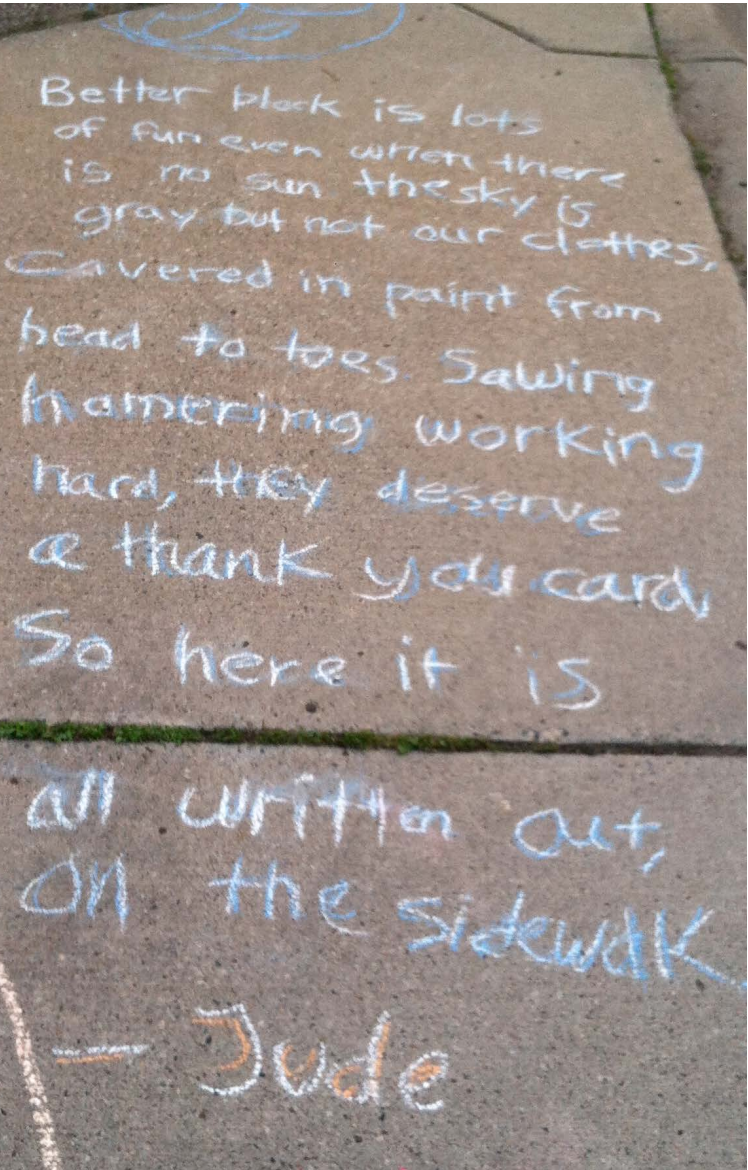 Better block is lots
of fun even when there
is no sun the sky is
gray but not our clothes,
Cavered in paint from
head to toes. Sawing
hamering working
hard, they deserve
a thank you card,
So here it is
all written out,
on the sidewalk
— Jude